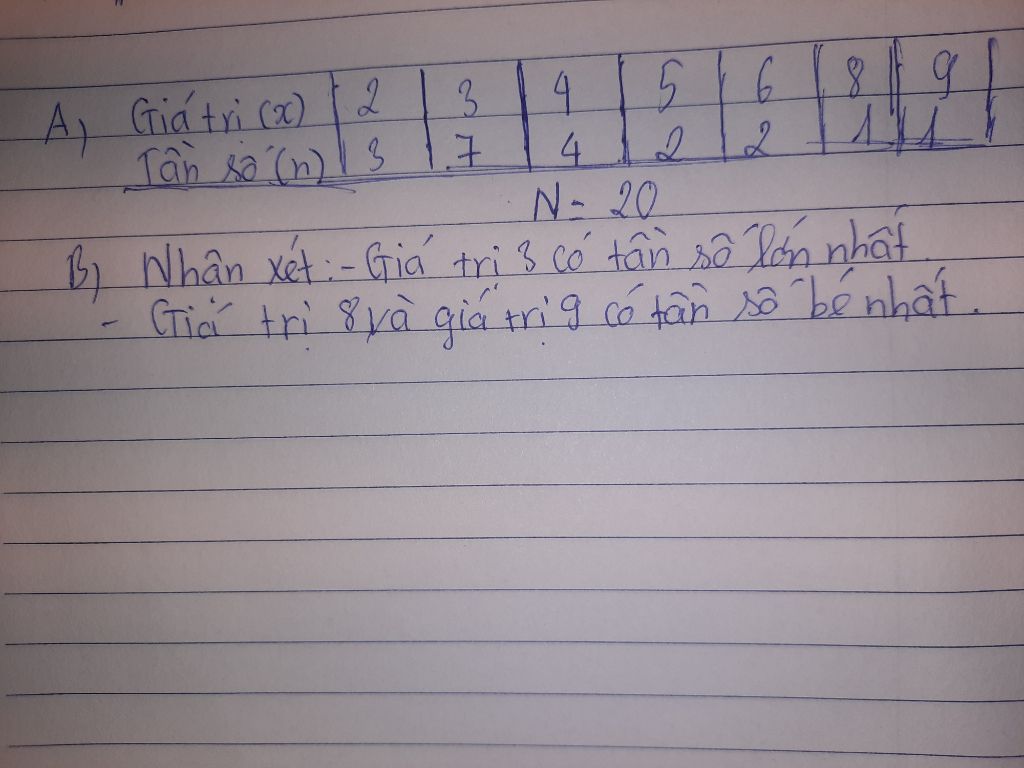 A, Giá trị (x) 2 3 4 5 6 8 9
Tần số (n) 3 7 4 2 2 1 1
N = 20
B) Nhận xét: - Giá trị 3 có tần số lớn nhất.
- Giá trị 8 và giá trị 9 có tần số bé nhất.